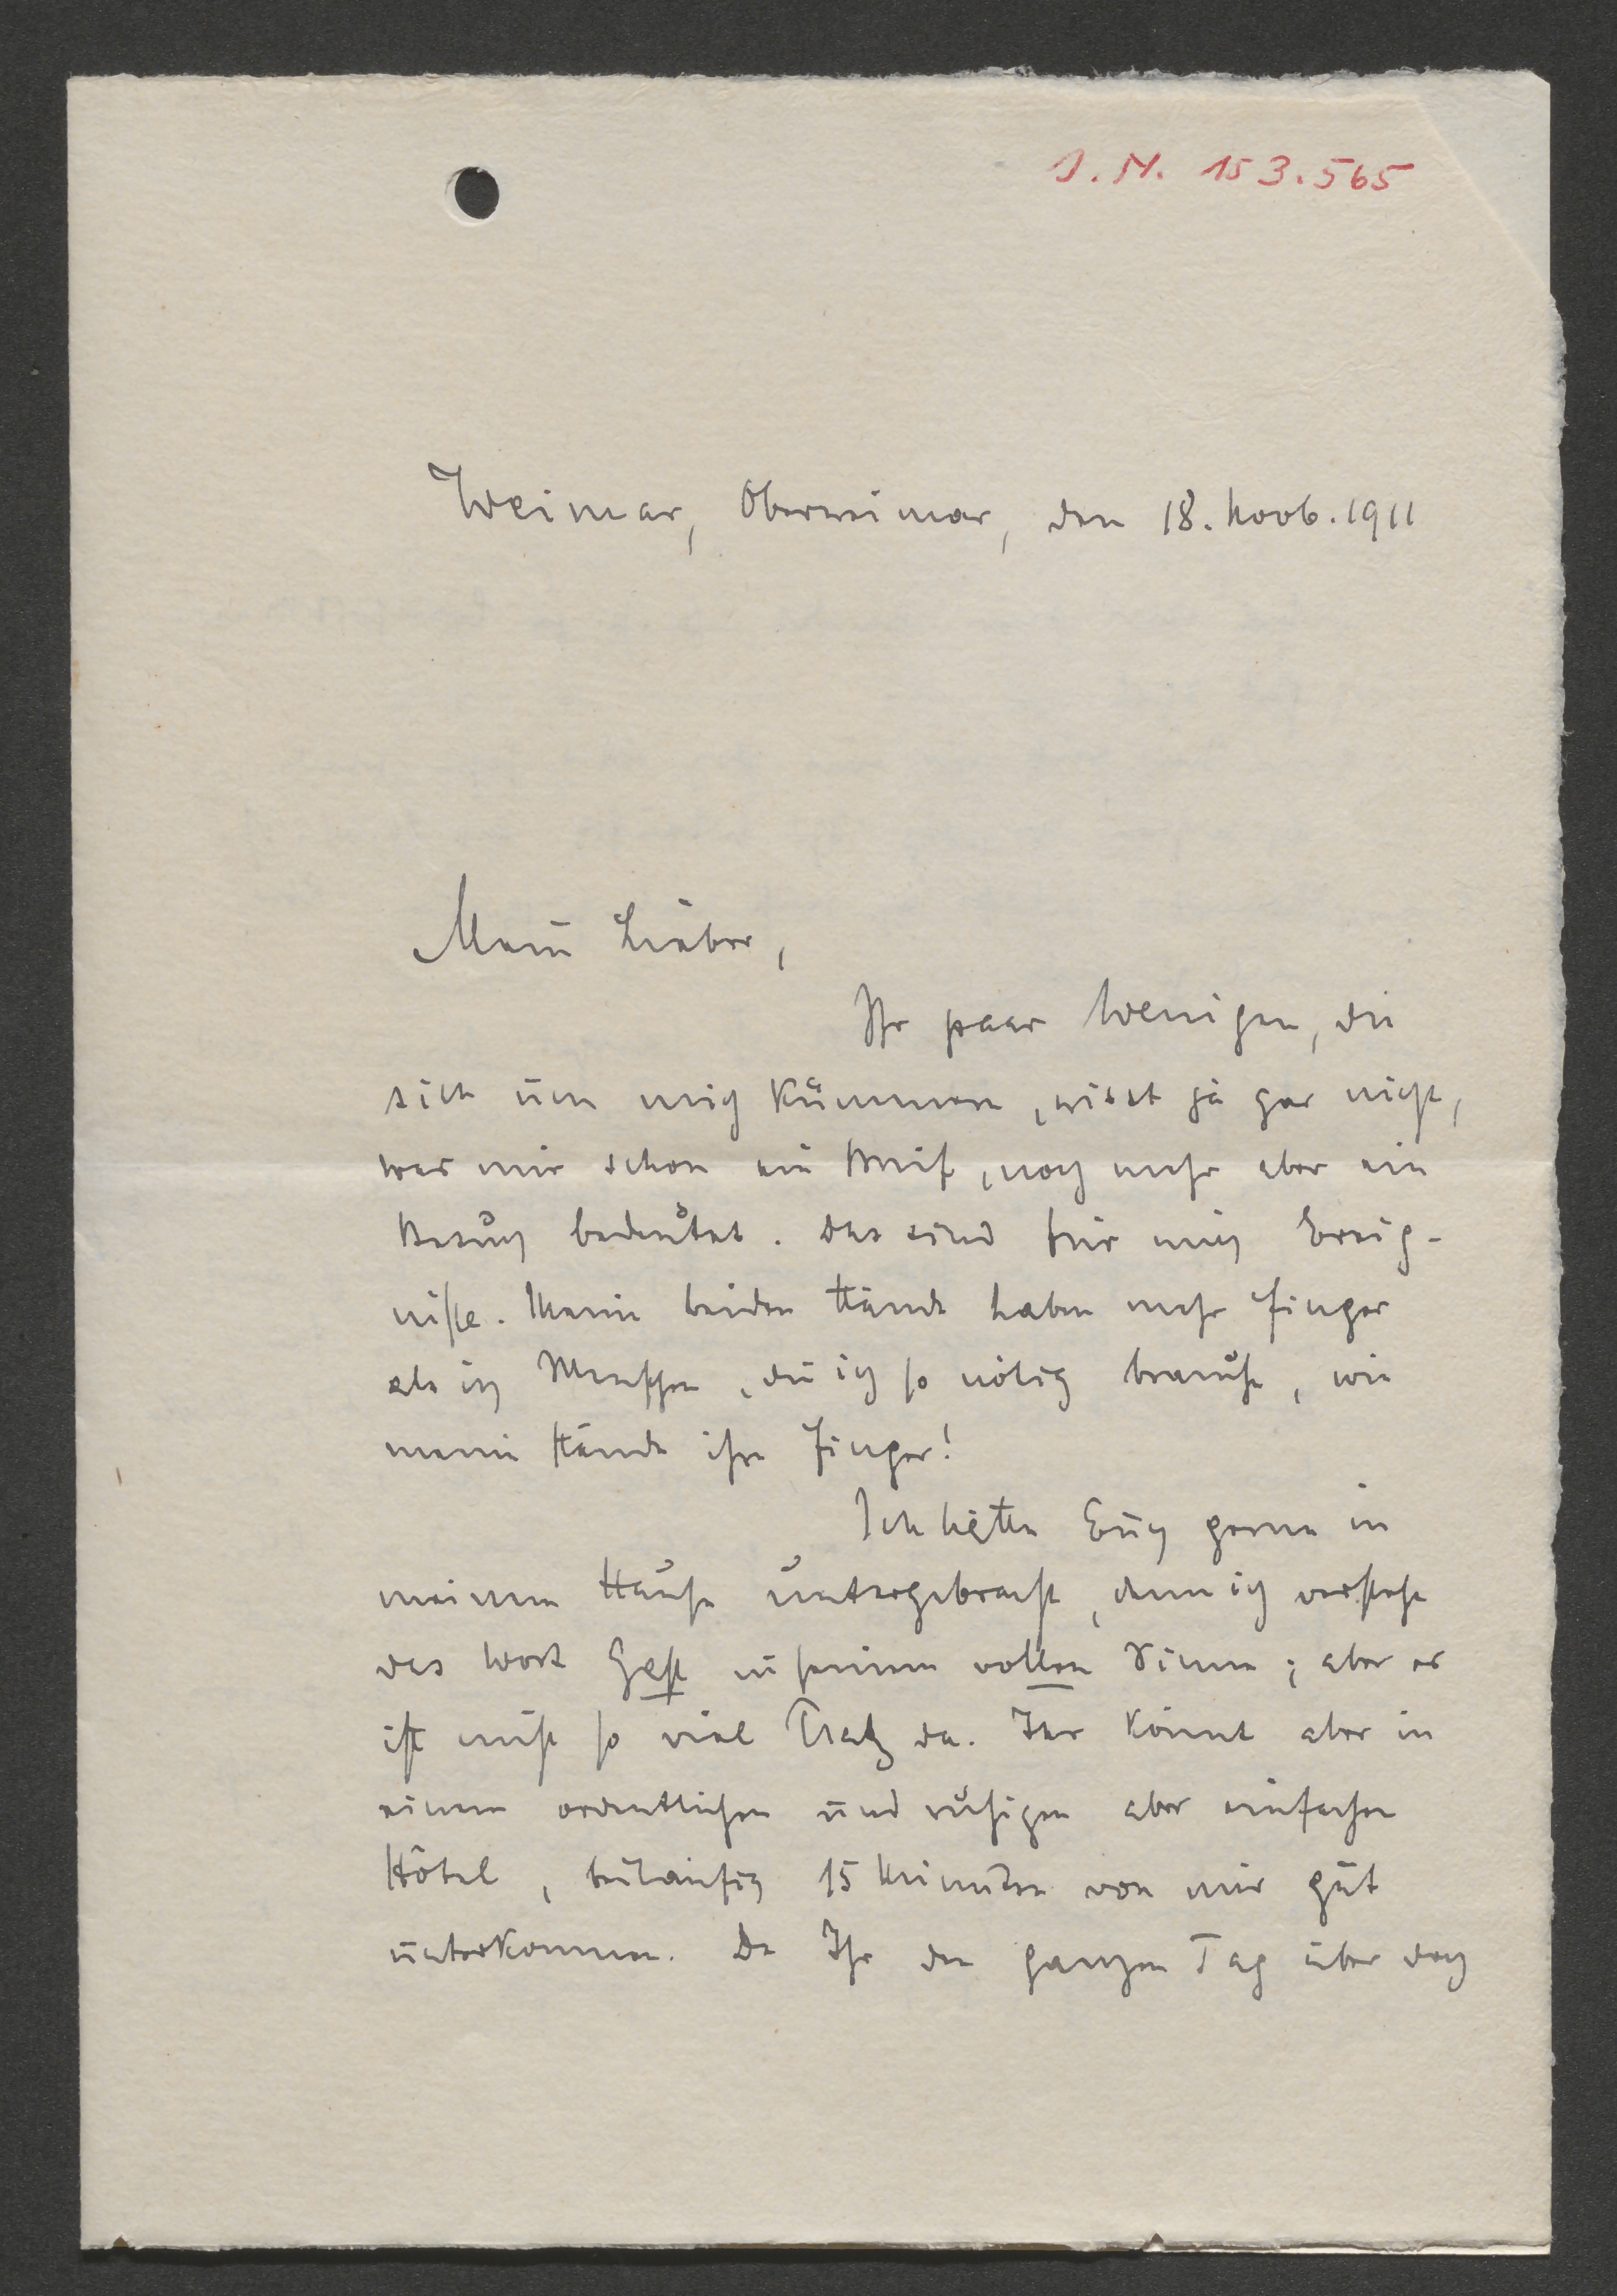 J. N. 153.565
Weimar, Oberweimar, den 18. Novb. 1911
Mein Lieber,
Ihr paar Wenigen, die
sich um mich kümmern, wisst ja gar nicht,
was mir schon ein Brief, noch mehr aber ein
Besuch bedeutet. Das sind für mich Ereig-
nisse. Meine beiden Hände haben mehr Finger
als ich Menschen, die ich so nötig brauche, wie
meine Hände ihre Finger!
Ich hätte Euch gerne in
meinem Hause untergebracht, denn ich verstehe
das Wort Gast in seinem vollen Sinne; aber es
ist nicht so viel Platz da. Ihr könnt aber in
einem ordentlichen und ruhigen aber einfachen
Hôtel, beiläufig 15 Minuten von mir gut
unterkommen. Da Ihr den ganzen Tag über doch